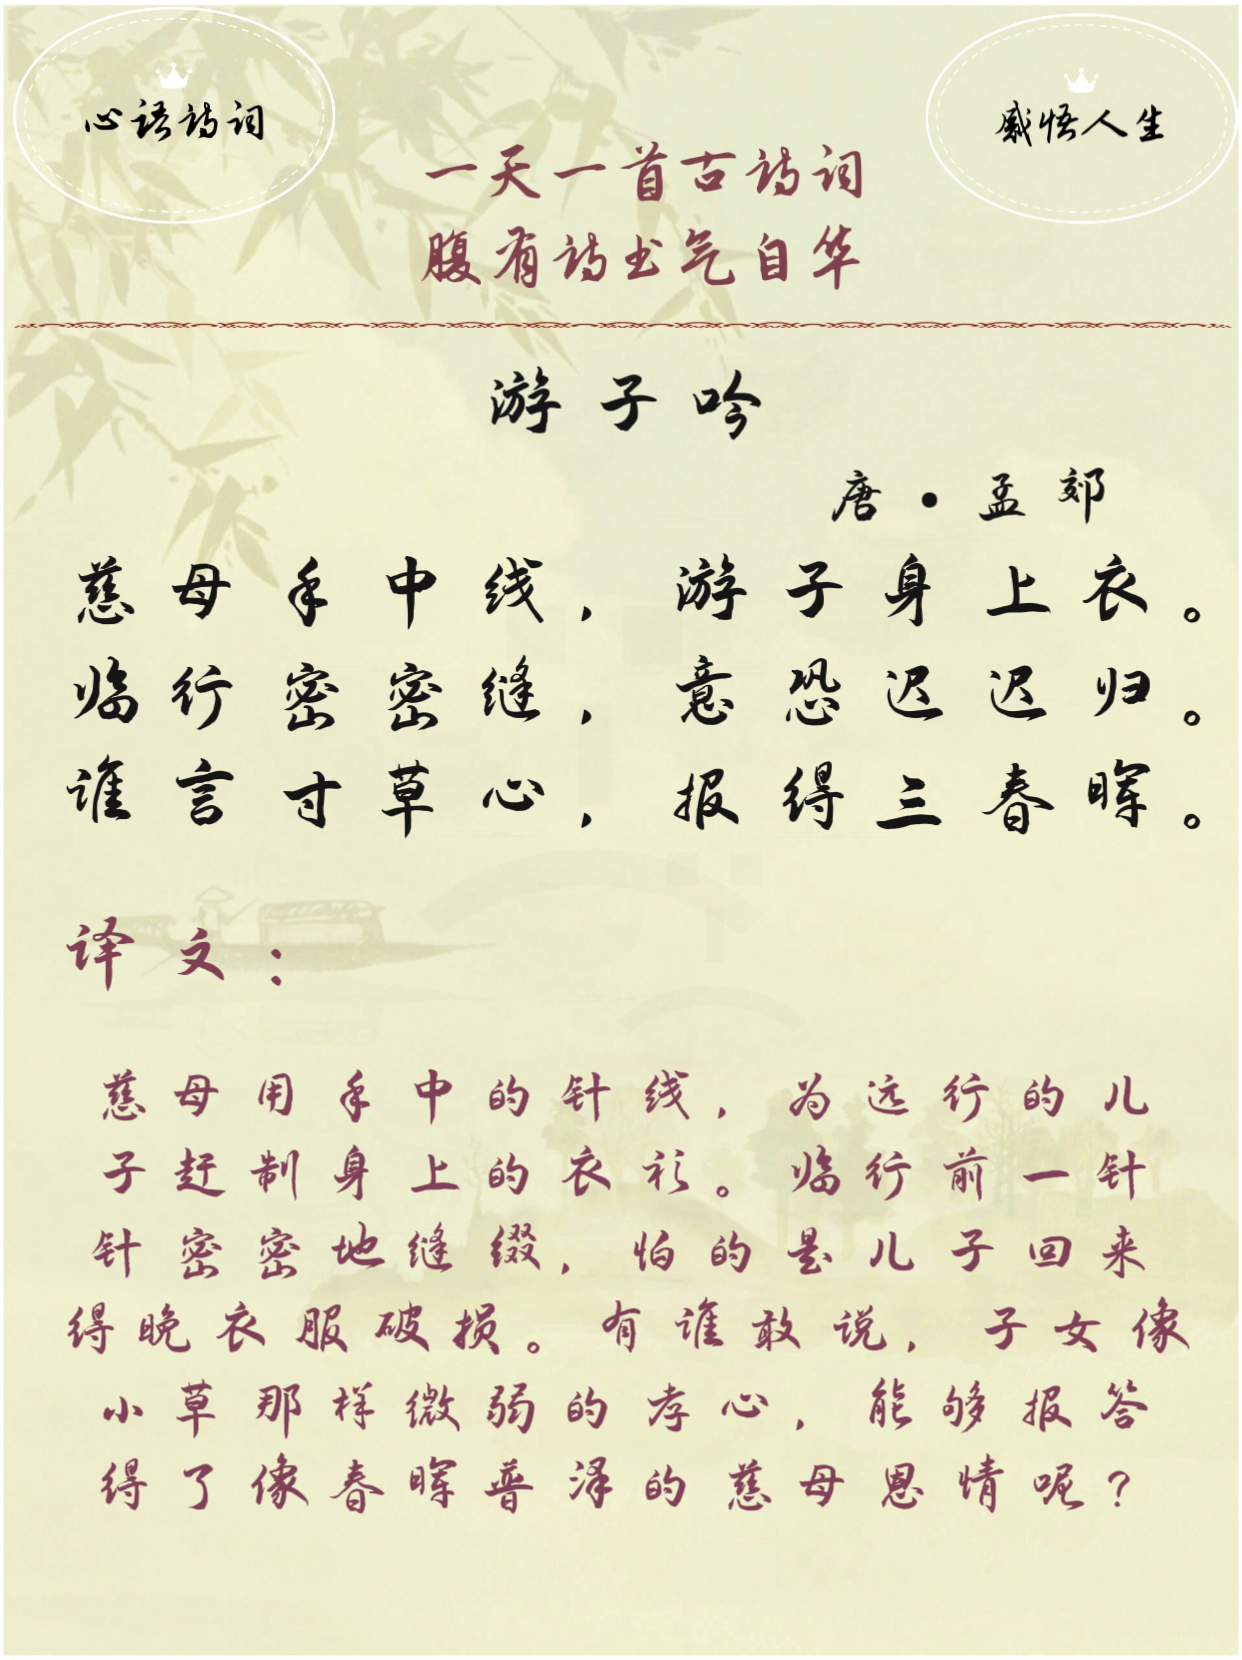 心语诗词
感悟人生
一天一首古诗词
腹有诗书气自华
游子吟
唐·孟郊
慈母手中线，游子身上衣。
临行密密缝，意恐迟迟归。
谁言寸草心，报得三春晖。
译文：
慈母用手中的针线，为远行的儿
子赶制身上的衣衫。临行前一针
针密密地缝缀，怕的是儿子回来
得晚衣服破损。有谁敢说，子女像
小草那样微弱的孝心，能够报答
得了像春晖普泽的慈母恩情呢？